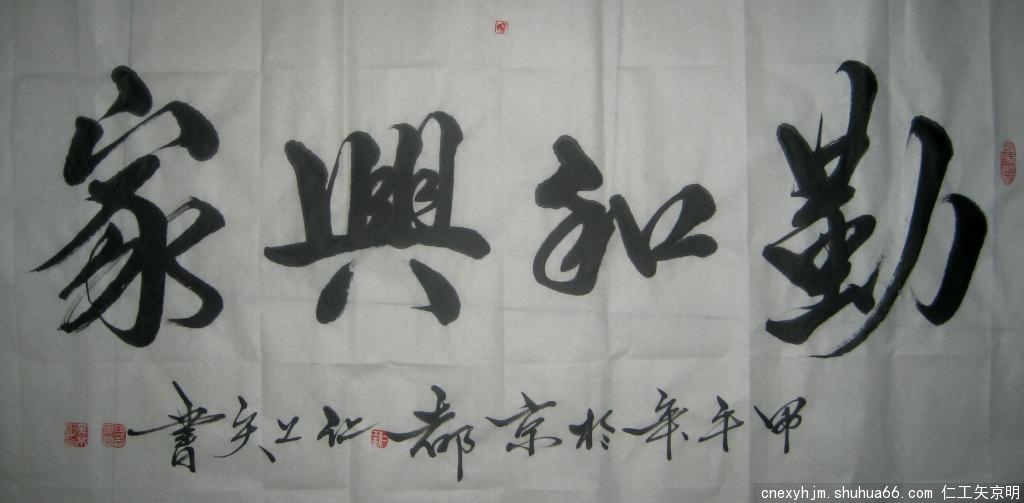 勤和興家
甲午年於京都仁工矢書
cnexyhjm.shuhua66.com 仁工矢京明